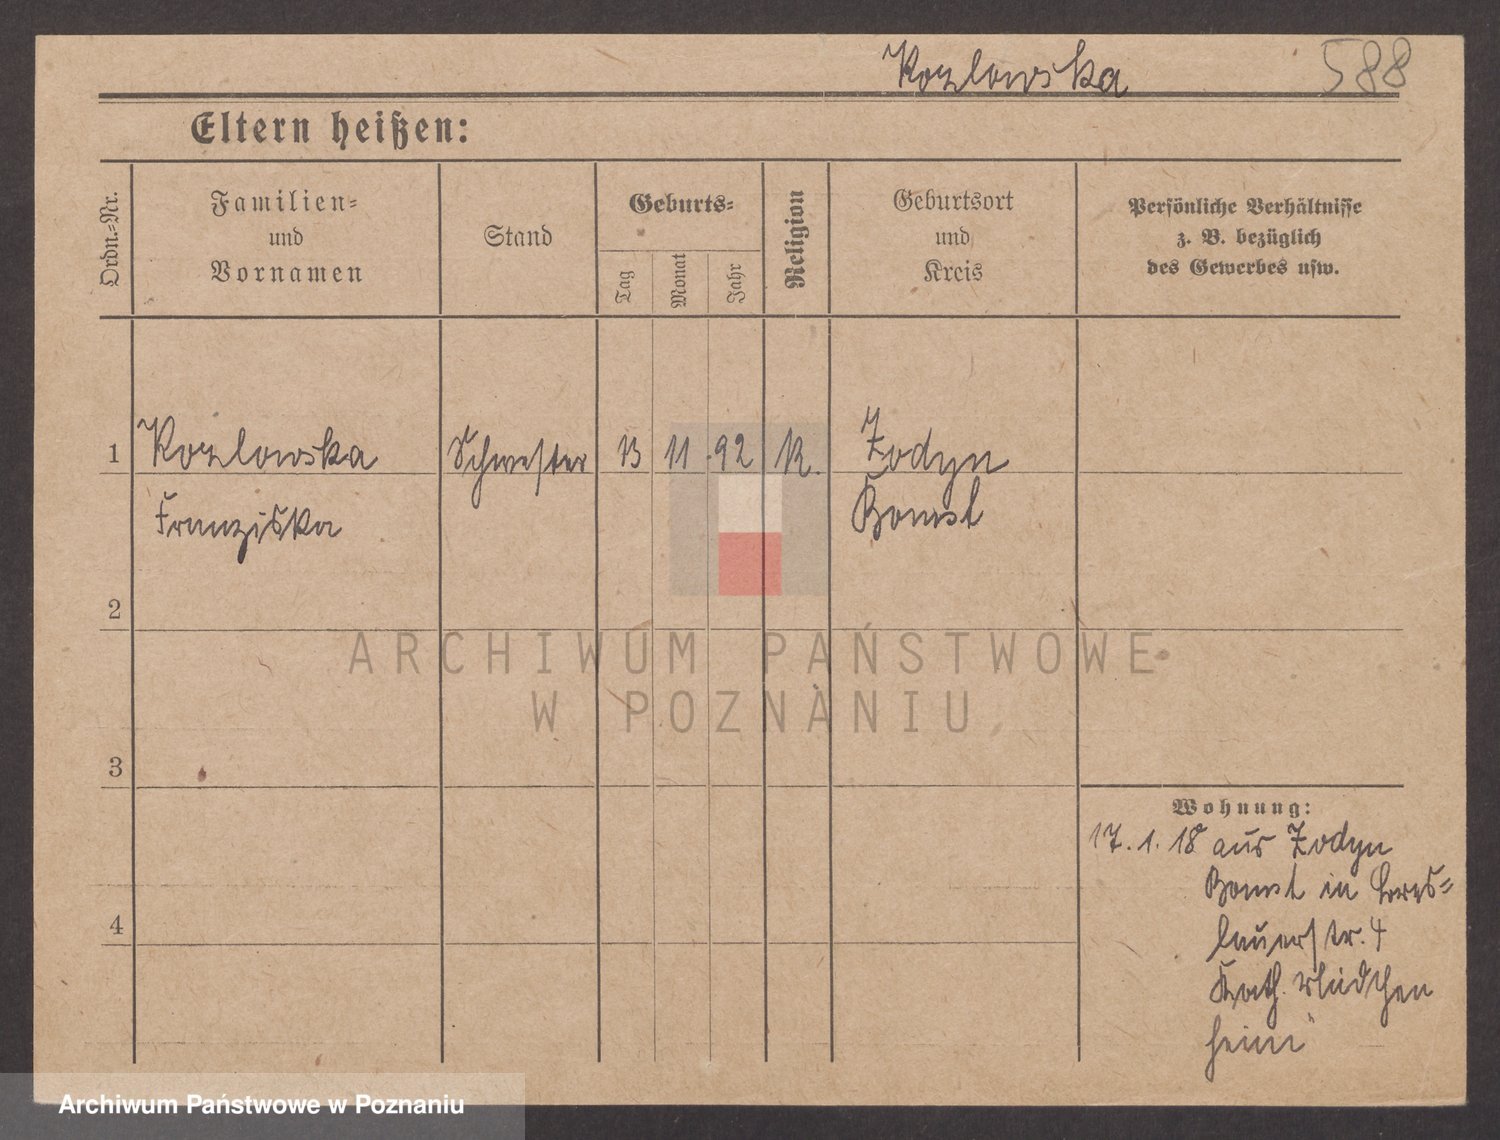 Kozlowska 588
Eltern heißen:
Ordn.-Nr.
Familien-
und
Vornamen
Stand
Geburts-
Tag
Monat
Jahr
Religion
Geburtsort
und
Kreis
Persönliche Verhältnisse
z. B. bezüglich
des Gewerbes usw.
1 Kozlowska Schwester 13 11 92 K. Zodyn
Franziska Bomst
2
3
4
Wohnung:
17.1.18 aus Zodyn
Bomst in Bres-
lauerstr. 4
Kath. Mädchen
heim
ARCHIWUM PAŃSTWOWE
W POZNANIU
Archiwum Państwowe w Poznaniu